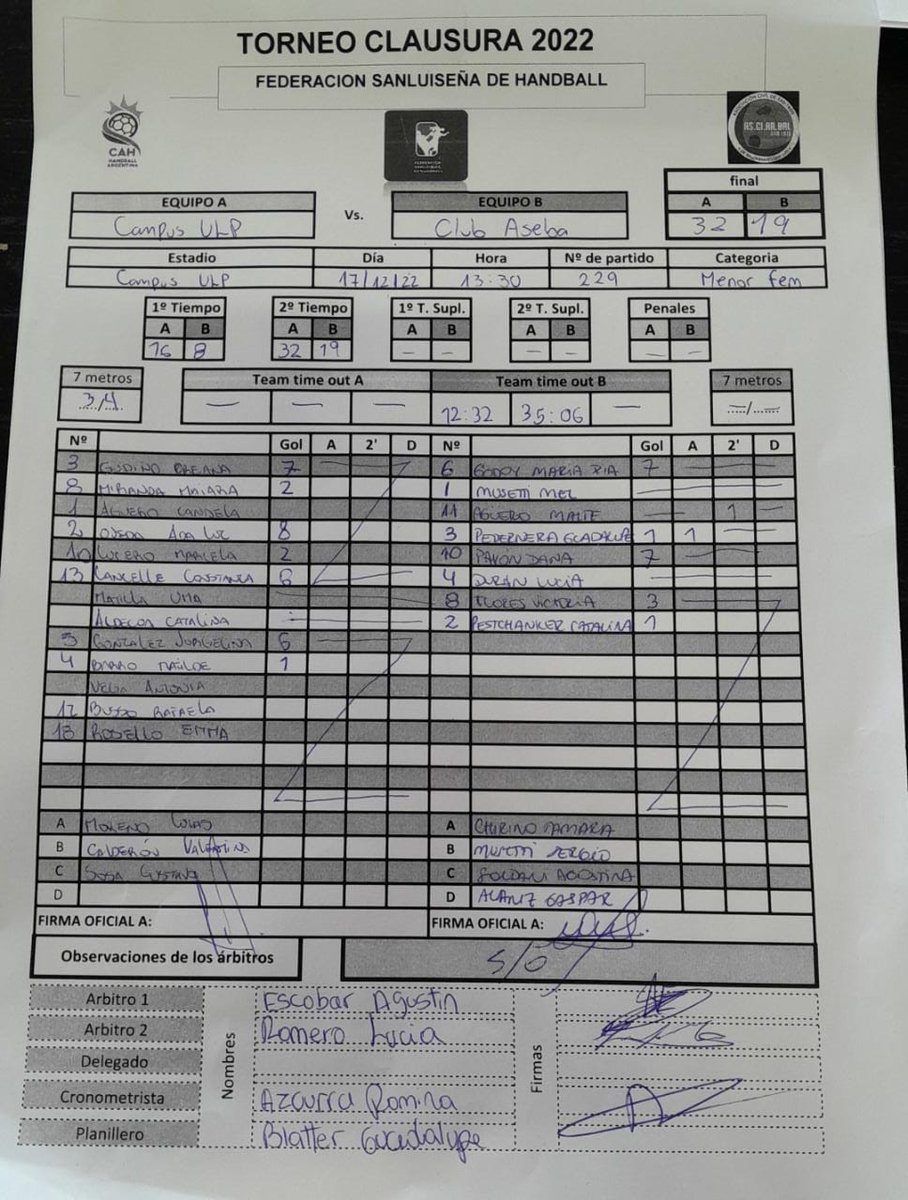 TORNEO CLAUSURA 2022
FEDERACION SANLUISEÑA DE HANDBALL
CAH
HANDBALL
ARGENTINA
AS.CI.AR.BAL
final
EQUIPO A Vs. EQUIPO B A B
Campus ULP Club Aseba 32 19
Estadio Día Hora Nº de partido Categoria
Campus ULP 17/12/22 13:30 229 Menor fem
1º Tiempo 2º Tiempo 1º T. Supl. 2º T. Supl. Penales
A B A B A B A B A B
16 8 32 19 – – – – – –
7 metros Team time out A Team time out B 7 metros
3/4 — — — 12:32 35:06 — —/—
Nº Gol A 2' D Nº Gol A 2' D
3 GUDIÑO OREANA 7 6 GODOY MARIA PIA 7
8 MIRANDA MAIARA 2 1 MUSETTI MEL
1 AGUERO CANDELA 11 AGUERO MAITE 1
2 OJEDA ANA LUZ 8 3 PEDERNERA GUADALUPE 1 1
10 LUCERO MARCELA 2 10 PAVON DANA 7
13 LANCELLE CONSTANZA 6 4 DURAN LUCIA
MATILLA UMA 8 FLORES VICTORIA 3
CATALINA 2 PESTCHANKER CATALINA 1
5 GONZALEZ JORGELINA 6
4 BARRO 1
VEGA ANTONIA
12 BUSSO RAFAELA
18 EMMA
A MORENO LUCAS A CHIRINO TAMARA
B CALDERÓN VALENTINA B MUSETTI SERGIO
C SOSA GUSTAVO C SOLDANI AGOSTINA
D D ALANIZ GASPAR
FIRMA OFICIAL A: FIRMA OFICIAL A:
Observaciones de los árbitros S/O
Arbitro 1 Escobar Agustin
Arbitro 2 Romero Lucia
Delegado
Nombres Firmas
Cronometrista Azcurra Romina
Planillero Blatter Guadalupe